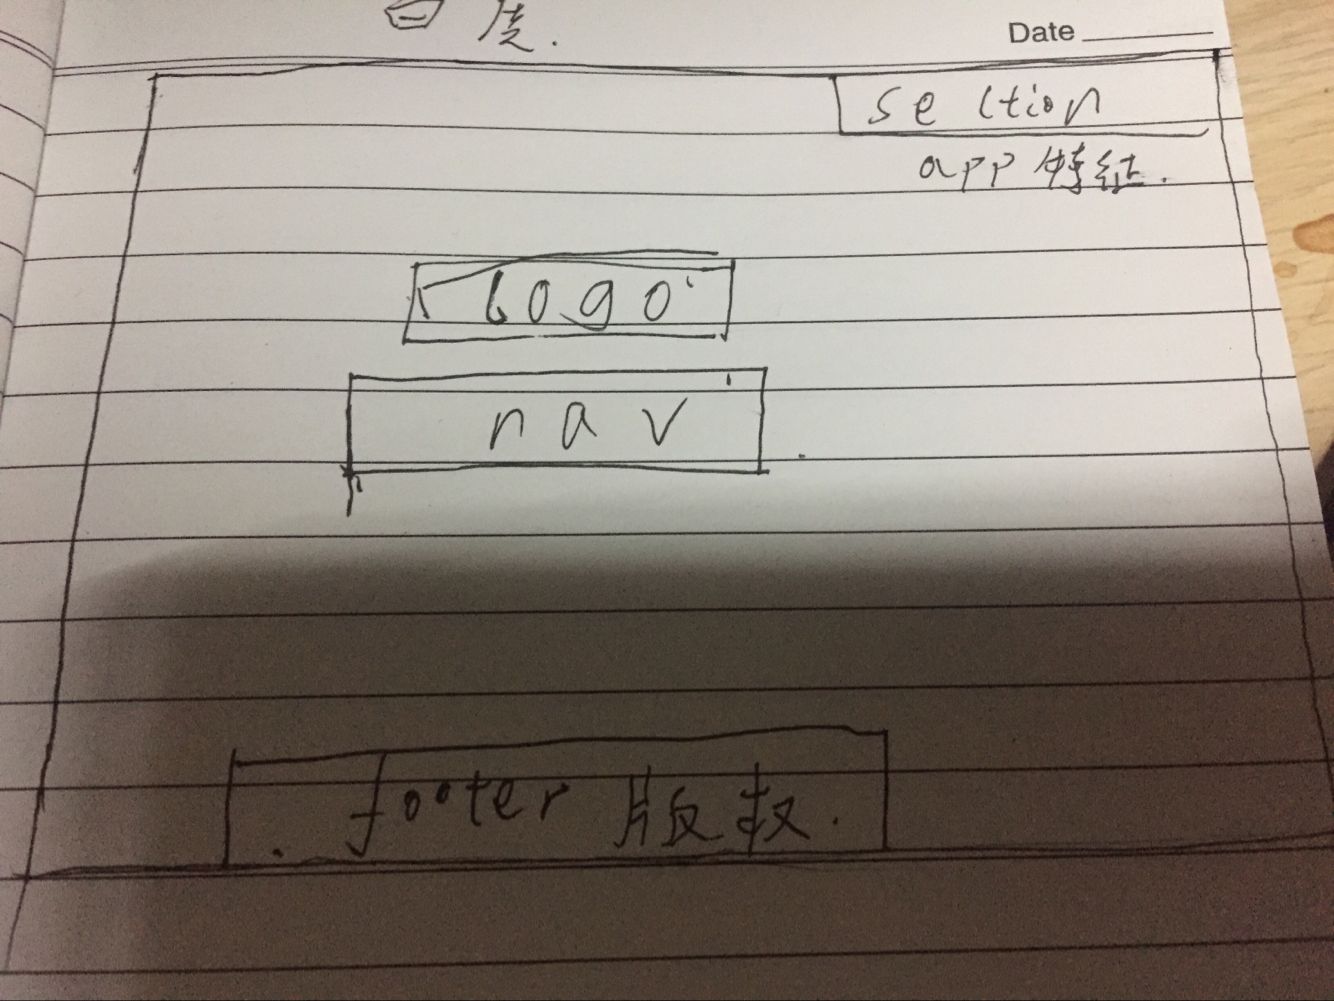 百度.
Date
section
app 特征.
logo
nav
footer 版权.